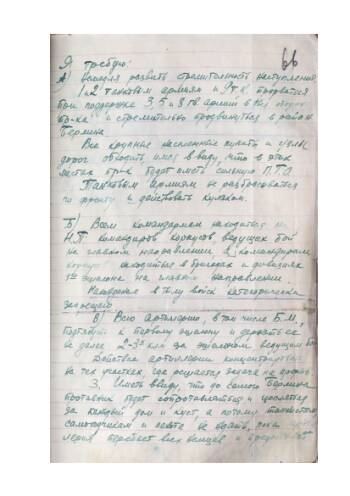 66
Я требую:
А) немедля развить стремительность наступления.
1 и 2 танковым армиям и 9 т.к. прорваться
при поддержке 3, 5 и 8 гв. армии в
пр-ка и стремительно продвинуться в район
Берлина.
Все крупные населенные пункты и узлы
дорог обходить, имея в виду, что в этих
местах пр-к будет иметь сильную П.Т.О.
Танковым армиям не разбрасываться
по фронту и действовать кулаком.
Б) Всем командармам находиться на
Н.П. командиров корпусов, ведущих бой
на главном направлении, а командирам
находиться в бригадах и дивизиях
1го эшелона на главном направлении.
в тылу войск категорически
запрещаю
В) Всю артиллерию в том числе Б.М.
подтянуть к первому эшелону и держать её
не далее 2-3х клм за эшелоном ведущим бой
Действия артиллерии концентрировать
на тех участках, где решается задача на
3. Иметь в виду, что до самого Берлина
противник будет сопротивляться и цепляться
за каждый дом и куст, а потому танкистам
самоходчикам и пехоте не ждать, пока
лерия перебьет всех немцев и